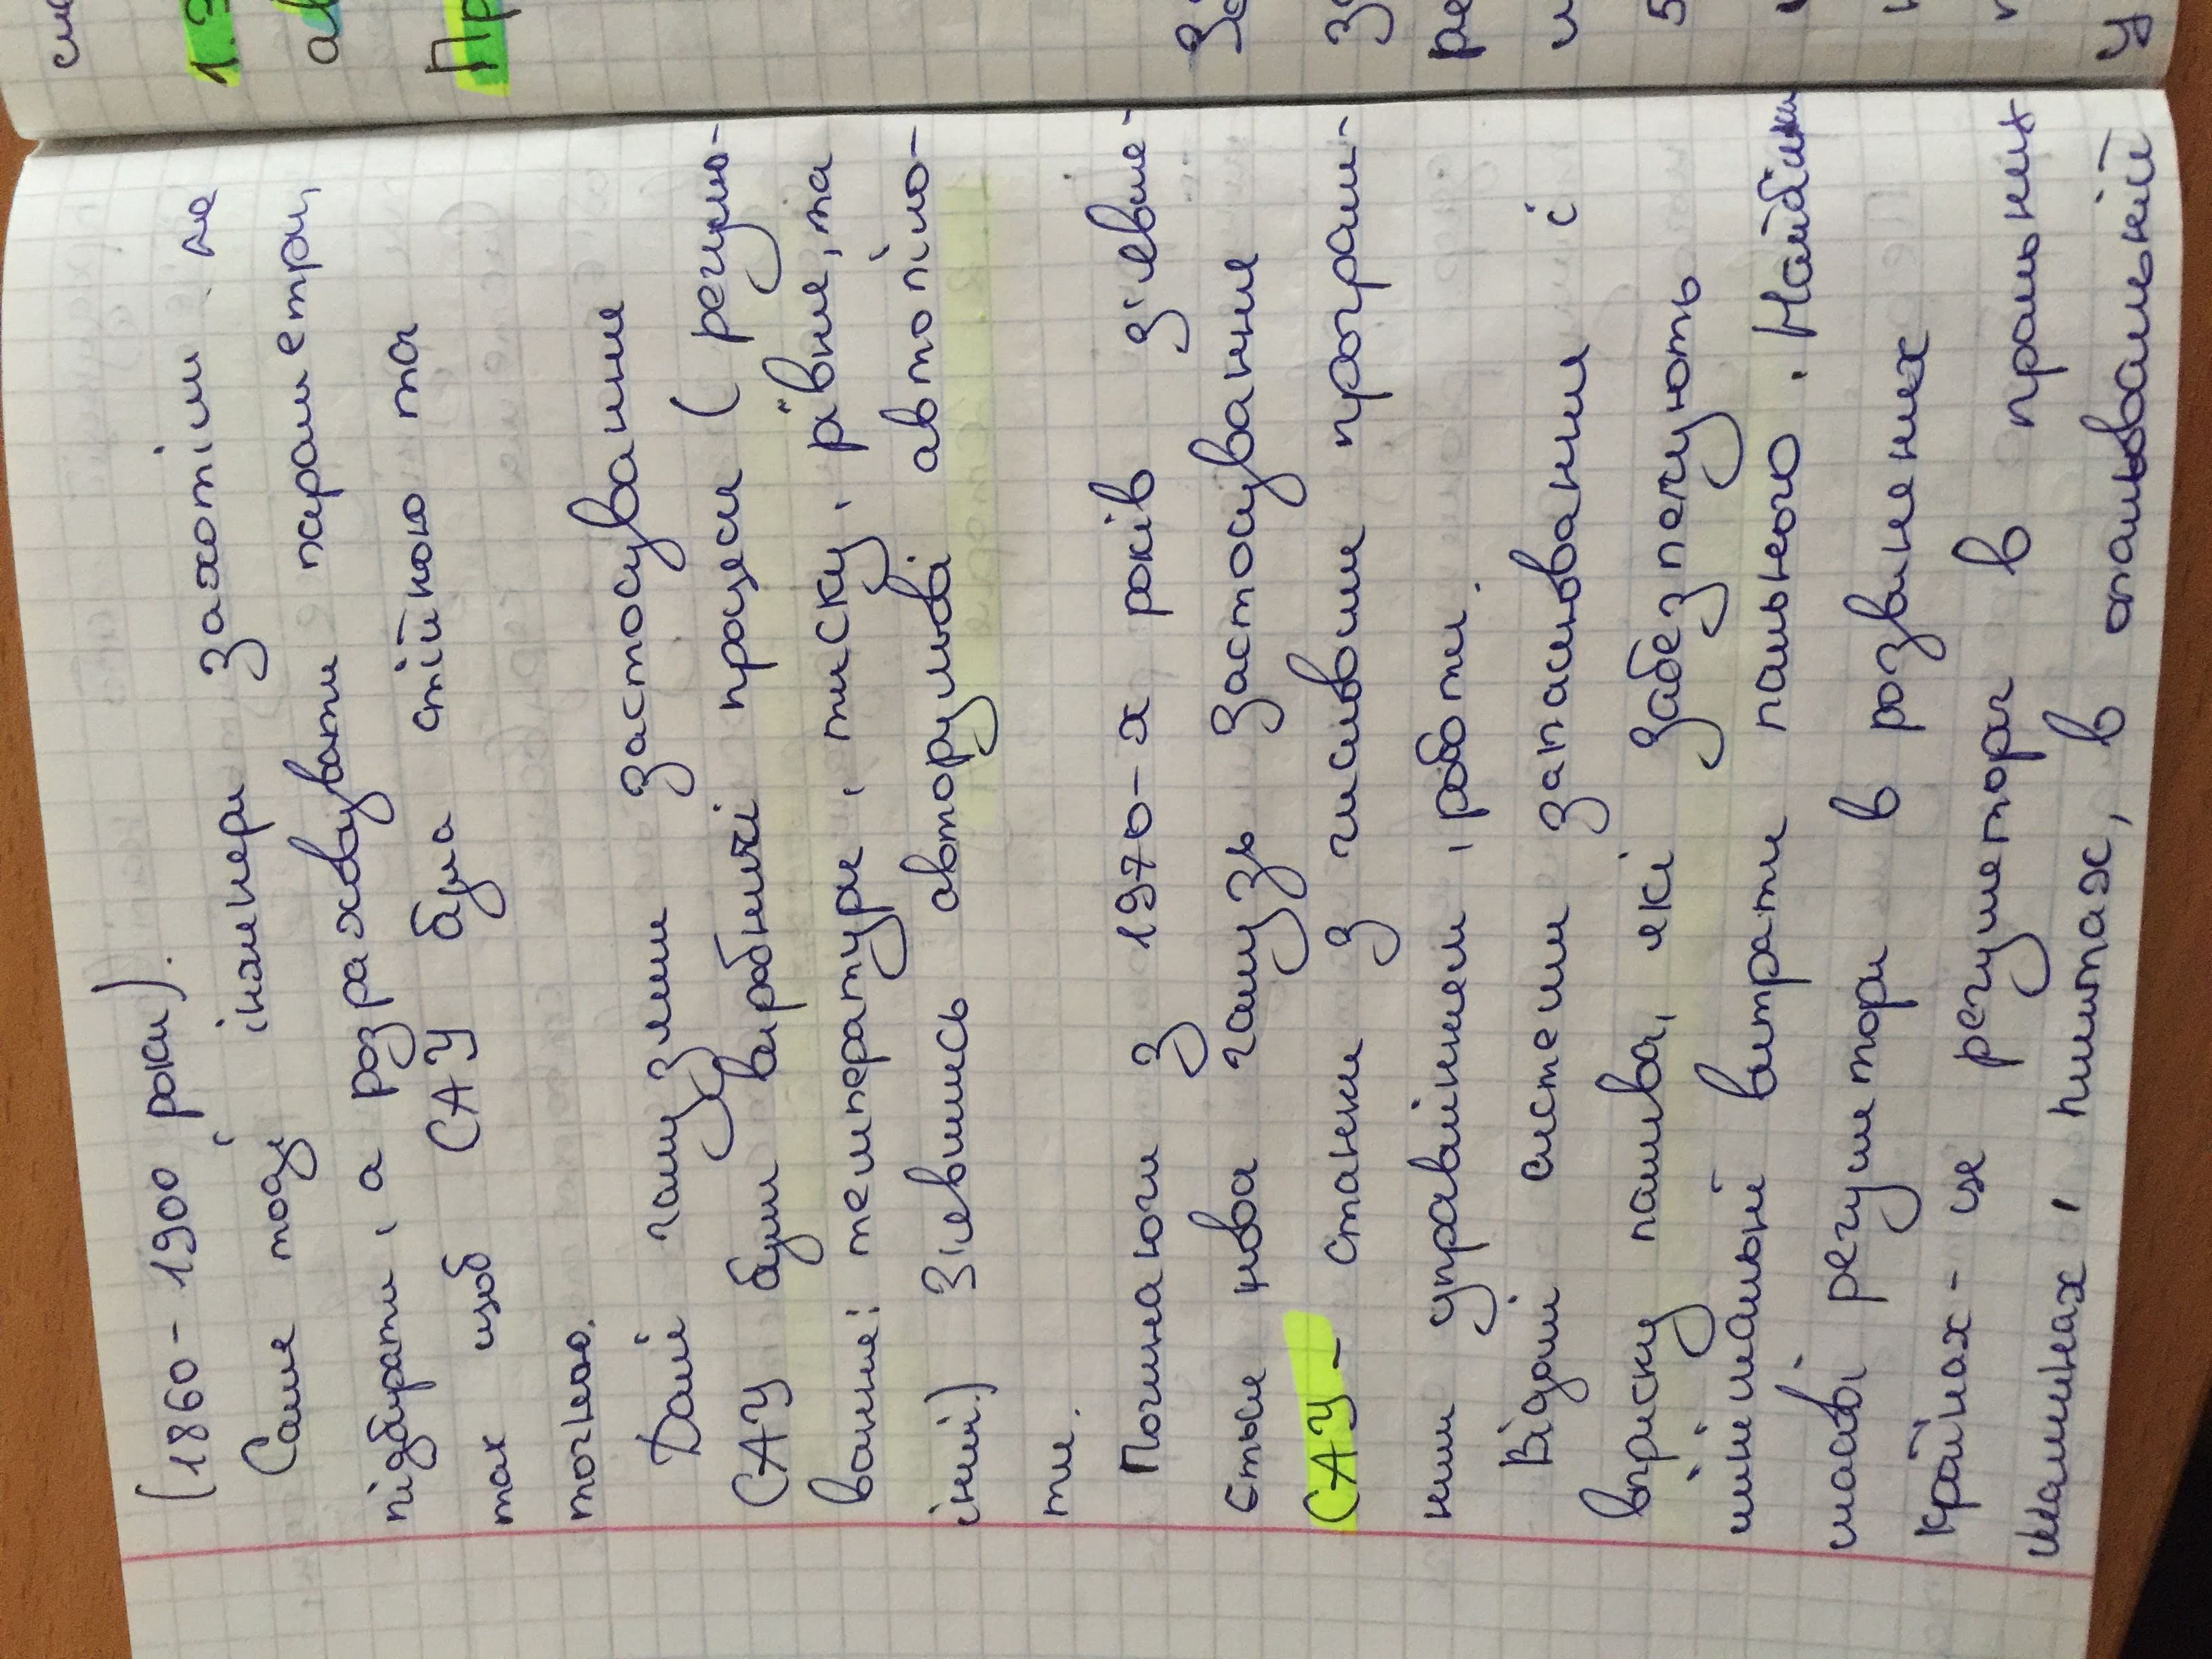 (1860 - 1900 роки).
Саме тоді інженери захотіли не
підбирати, а розраховувати параметри,
так щоб САУ була стійкою та
точною.
Далі галузями застосування
САУ були виробничі процеси ( регулю-
вання: температури, тиску, рівня, та
інші.) З'явились авторульові автопіло-
ти.
Починаючи з 1970-х років з'явля-
ється нова галузь застосування
САУ - станки з числовим програм-
ним управлінням, роботи.
Відомі системи запалювання і
вприску палива, які забезпечують
мінімальні витрати пального. Найбільш
масові регулятори в розвинених
країнах - це регулятори в пральних
машинах, плитах, в опалювальній
1.
ав
Пр
ре
У